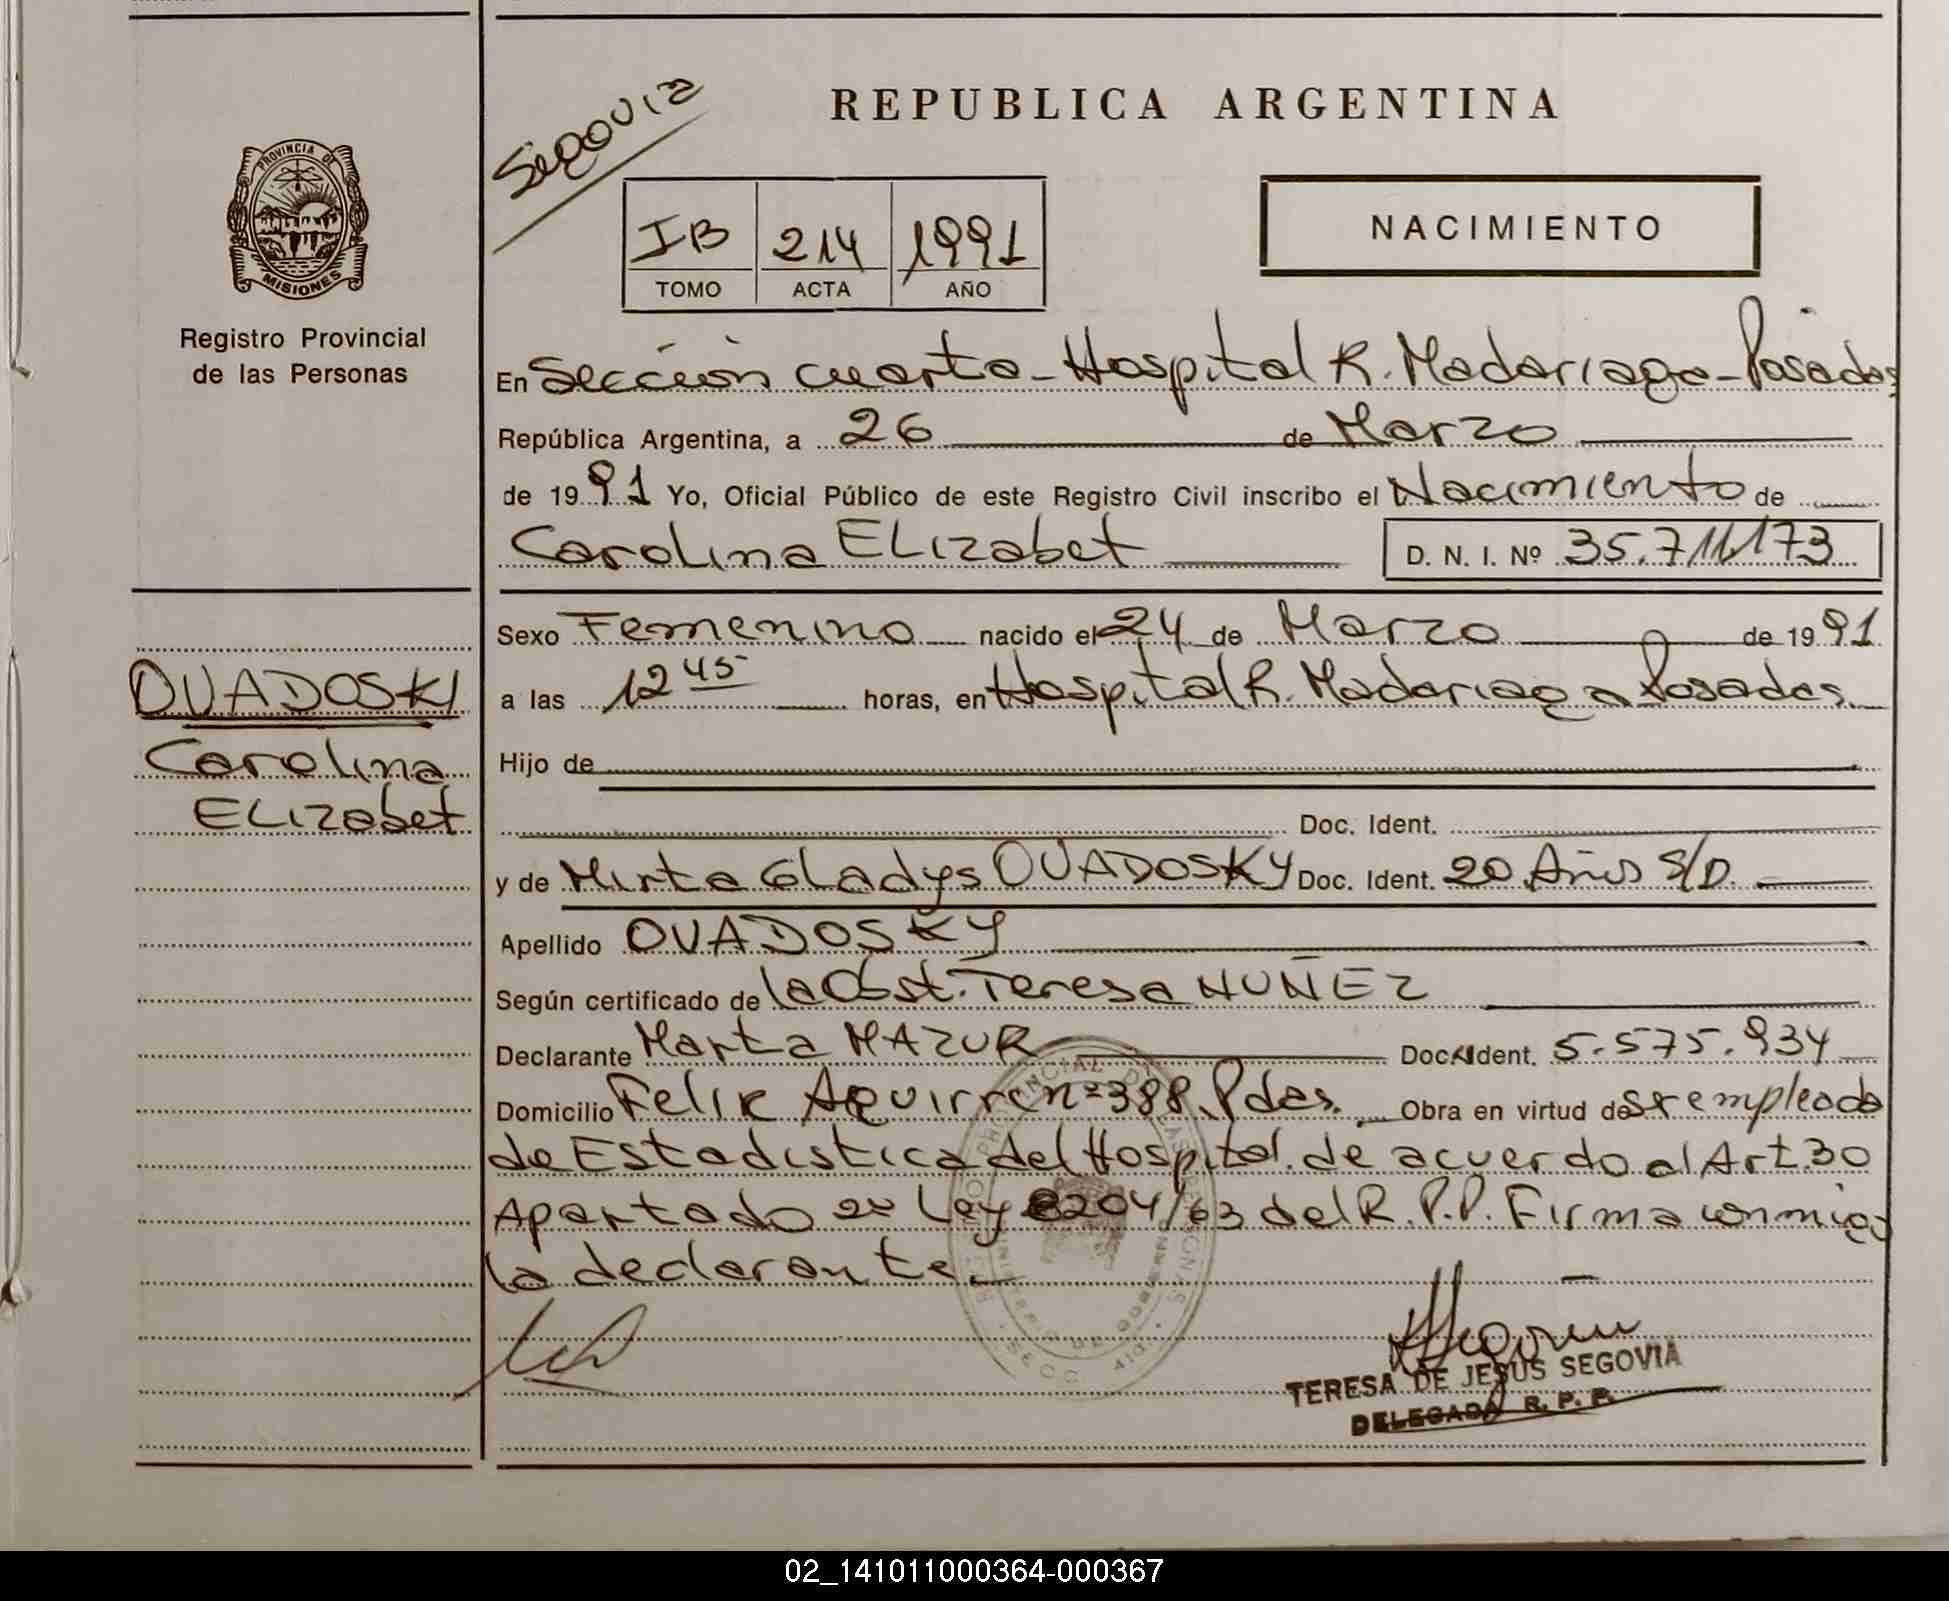 REPUBLICA ARGENTINA
Segovia
PROVINCIA DE
MISIONES
Registro Provincial
de las Personas
IB 214 1991
TOMO ACTA AÑO
NACIMIENTO
En Sección cuarta - Hospital R. Madariaga - Posadas
República Argentina, a 26 de Marzo
de 1991 Yo, Oficial Público de este Registro Civil inscribo el Nacimiento de
Carolina ELizabet D. N. I. Nº 35.711.173
OVADOSKI
Carolina
ELizabet
Sexo Femenino nacido el 24 de Marzo de 1991
a las 12 45 horas, en Hospital R. Madariaga Posadas
Hijo de
Doc. Ident.
y de Mirta Gladys OVADOSKY Doc. Ident. 20 Años S/D.
Apellido OVADOSKY
Según certificado de la Obst. Teresa NUÑEZ
Declarante Marta MAZUR Doc. Ident. 5.575.934
Domicilio Felix Aguirre nº 388 Pdas. Obra en virtud de ser empleada
de Estadistica del Hospital. de acuerdo al Art. 30
Apartado 2º Ley 8204/63 del R. P. P. Firma conmigo
la declarante.
TERESA DE JESUS SEGOVIA
DELEGADA R. P. P.
02_141011000364-000367